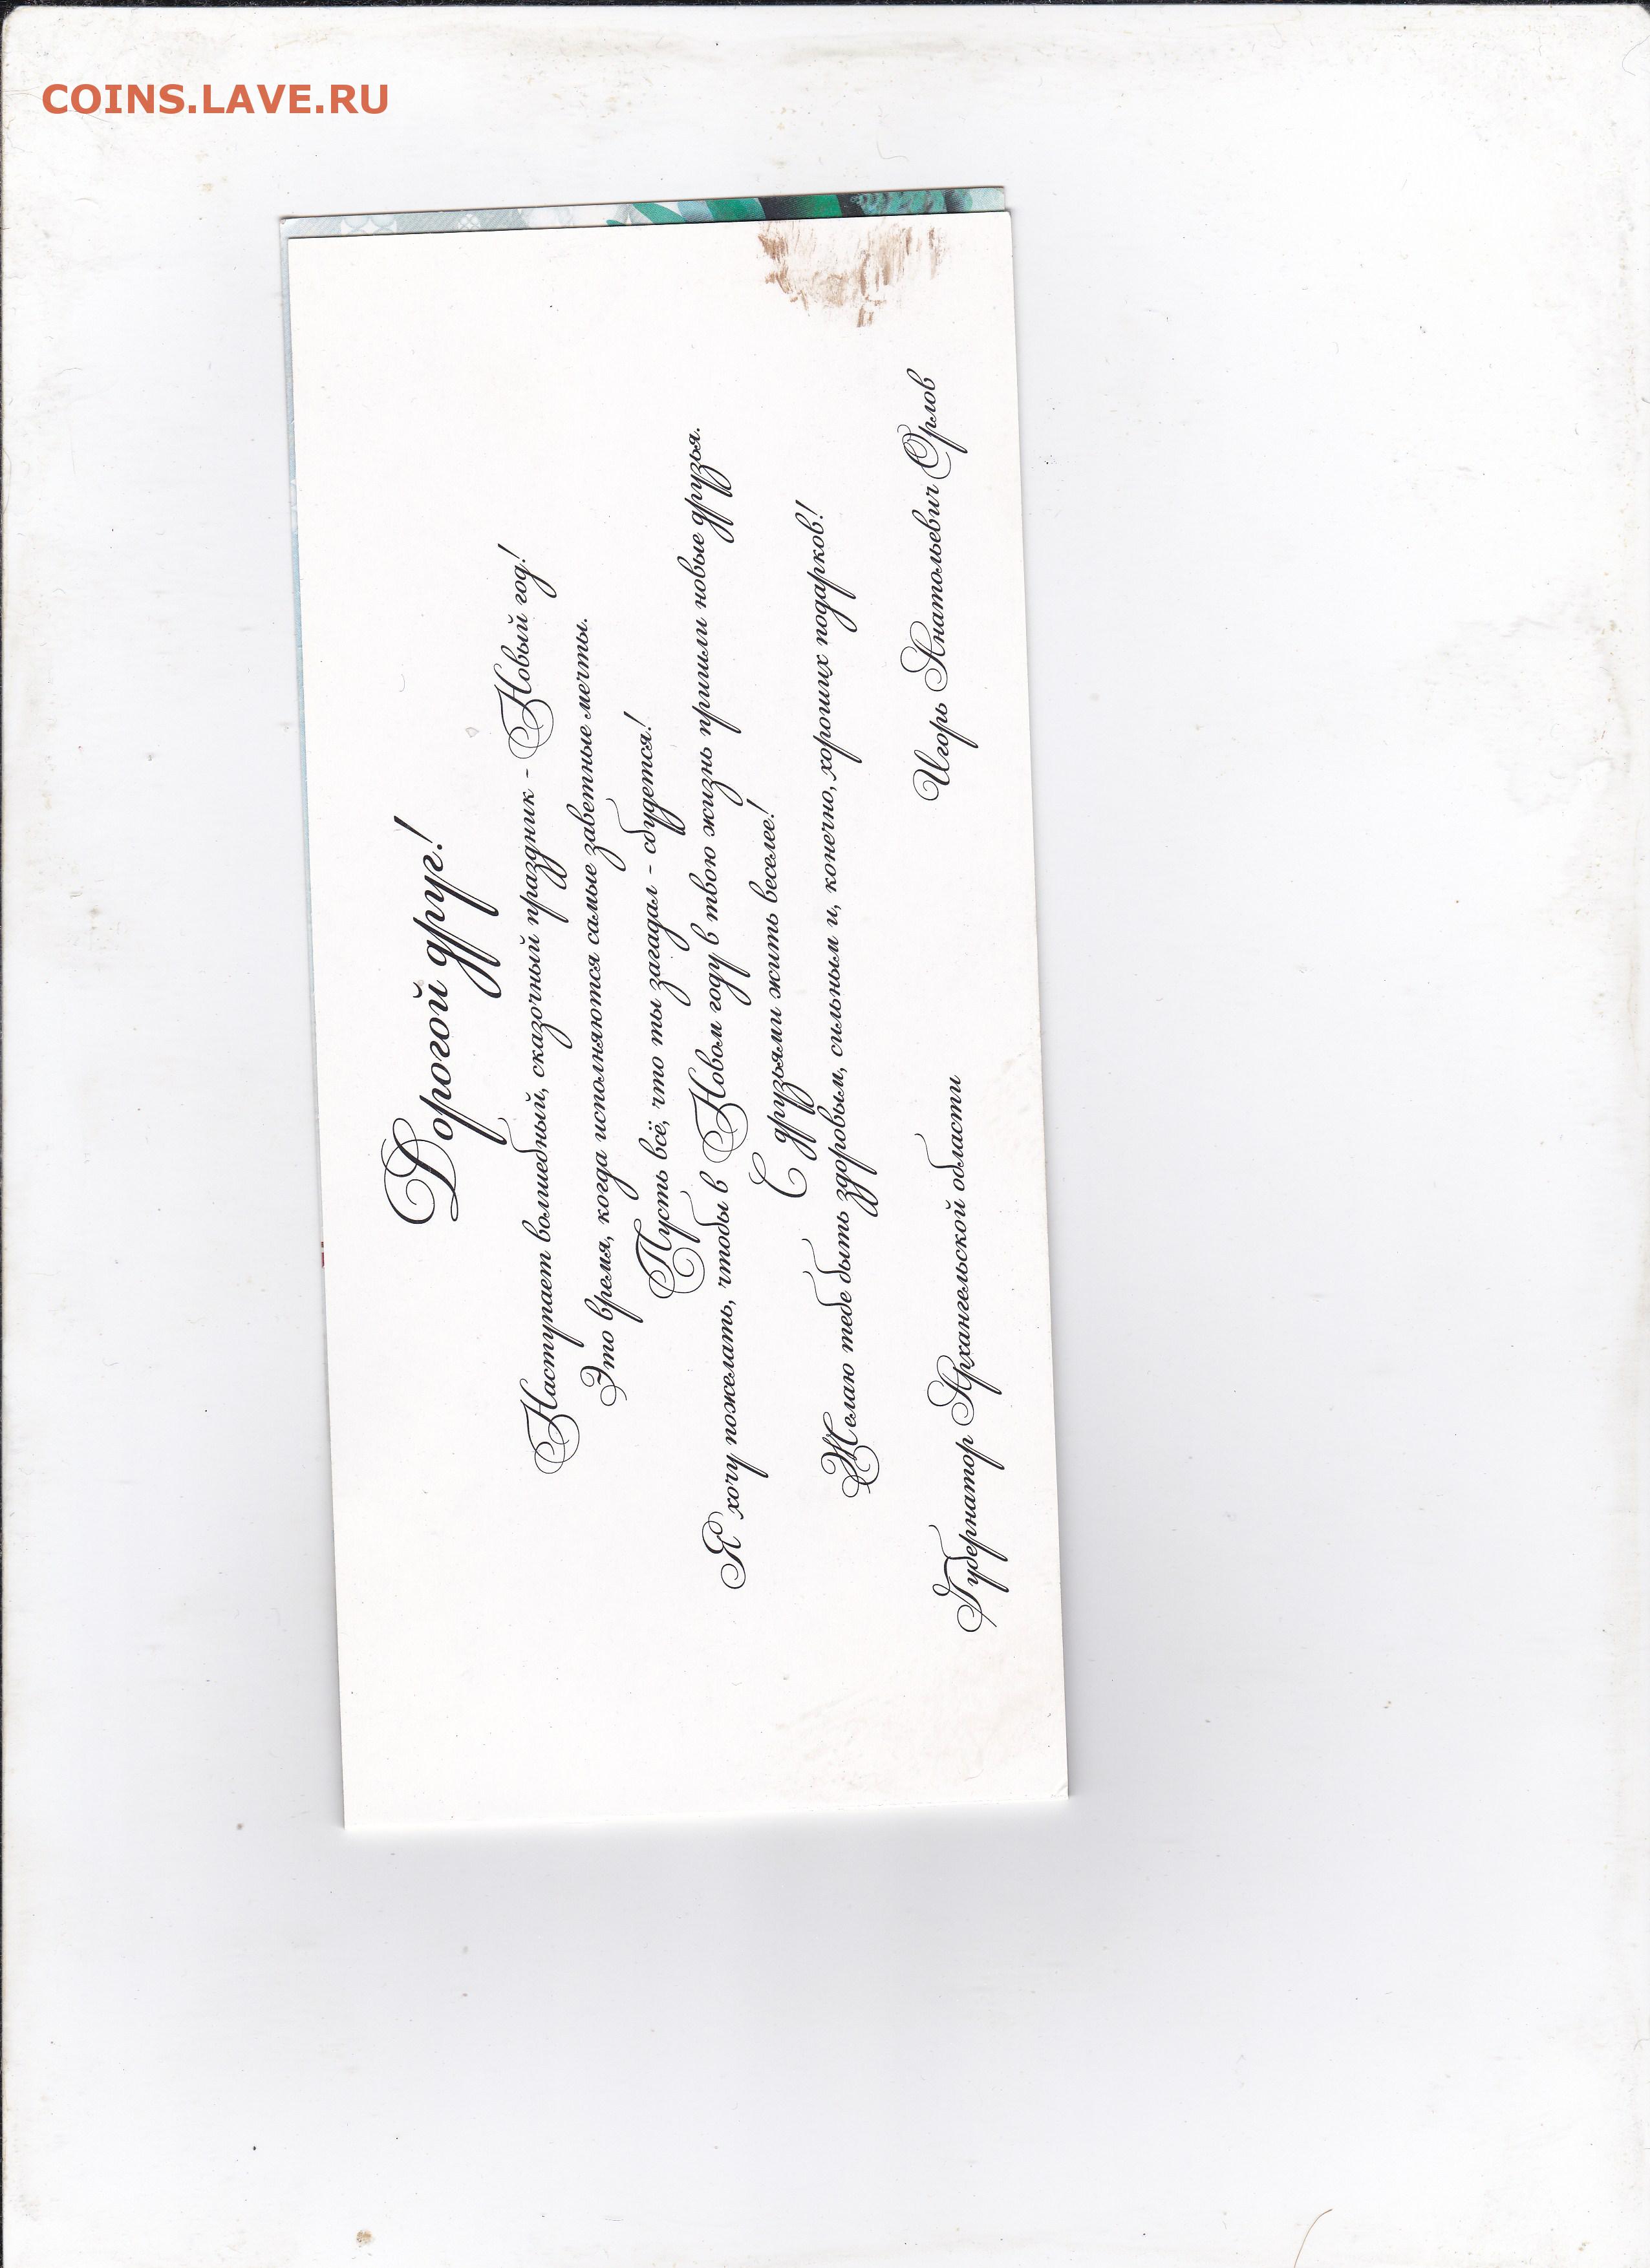 COINS.LAVE.RU
Дорогой друг!
Наступает волшебный, сказочный праздник - Новый год!
Это время, когда исполняются самые заветные мечты.
Пусть всё, что ты загадал - сбудется!
Я хочу пожелать, чтобы в Новом году в твою жизнь пришли новые друзья.
С друзьями жить веселее!
Желаю тебе быть здоровым, сильным и, конечно, хороших подарков!
Губернатор Архангельской области Игорь Анатольевич Орлов